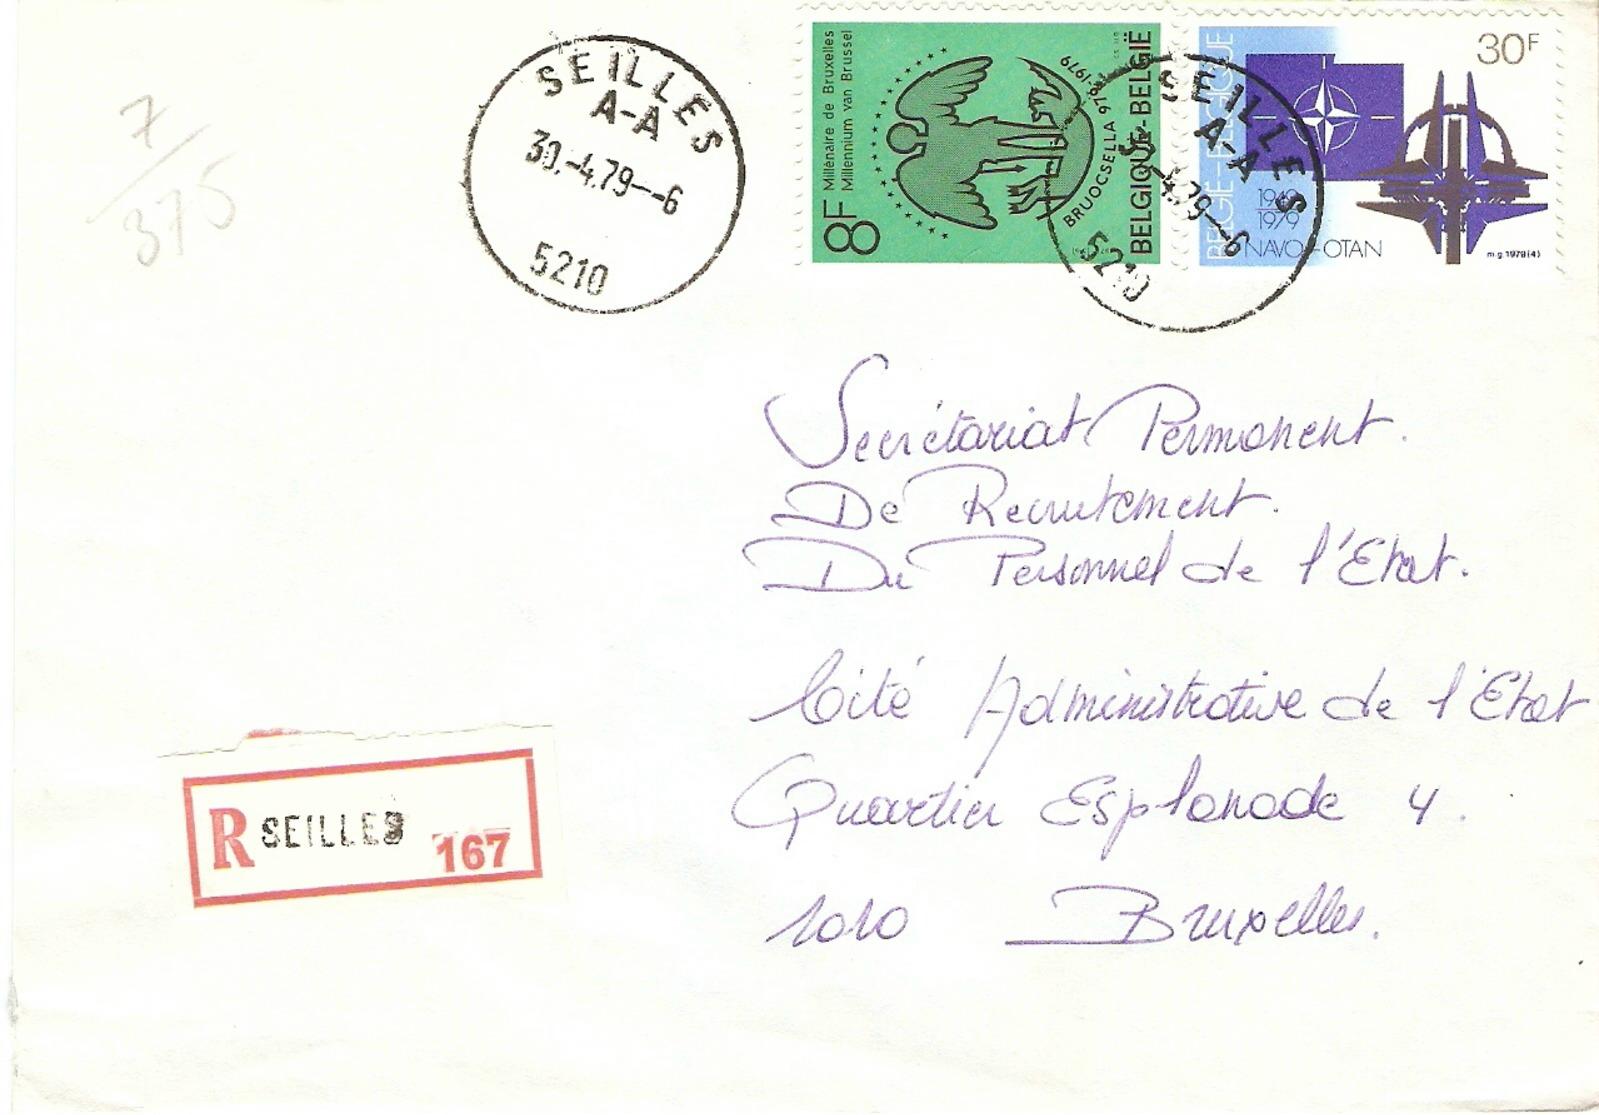 7
375
SEILLES
A-A
30.-4.79--6
5210
Millénaire de Bruxelles
Millennium van Brussel
8F
BRUOCSELLA 979-1979
BELGIQUE-BELGIË
SEILLES
A-A
4.79--6
5210
30F
BELGIË-BELGIQUE
1949
1979
NAVO-OTAN
m.g 1979(4)
Secrétariat Permanent.
De Recrutement.
Du Personnel de l'Etat.
Cité Administrative de l'Etat
Quartier Esplanade 4.
1010 Bruxelles.
R SEILLES 167